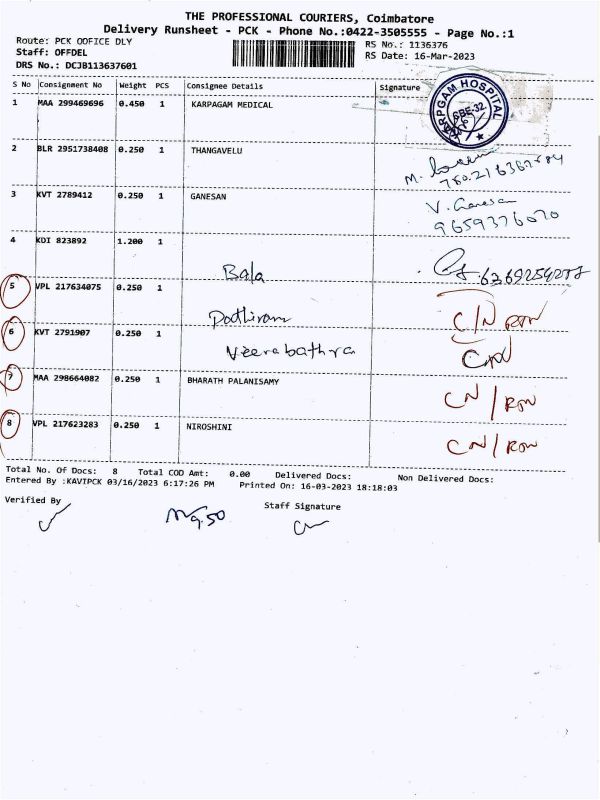 THE PROFESSIONAL COURIERS, Coimbatore
Delivery Runsheet - PCK - Phone No.:0422-3505555 - Page No.:1
Route: PCK OOFICE DLY RS No.: 1136376
Staff: OFFDEL RS Date: 16-Mar-2023
DRS No.: DCJB113637601
S No Consignment No Weight PCS Consignee Details Signature
1 MAA 299469696 0.450 1 KARPAGAM MEDICAL
HOSPITAL
2 BLR 2951738408 0.250 1 THANGAVELU
3 KVT 2789412 0.250 1 GANESAN V. Ganesan
9659376070
4 KDI 823892 1.200 1 Bala
5 VPL 217634075 0.250 1 C/N
6 KVT 2791907 0.250 1 Veerabathra
7 MAA 298664082 0.250 1 BHARATH PALANISAMY CN /
8 VPL 217623283 0.250 1 NIROSHINI CN /
Total No. Of Docs: 8 Total COD Amt: 0.00 Delivered Docs: Non Delivered Docs:
Entered By :KAVIPCK 03/16/2023 6:17:26 PM Printed On: 16-03-2023 18:18:03
Verified By Staff Signature
9.50